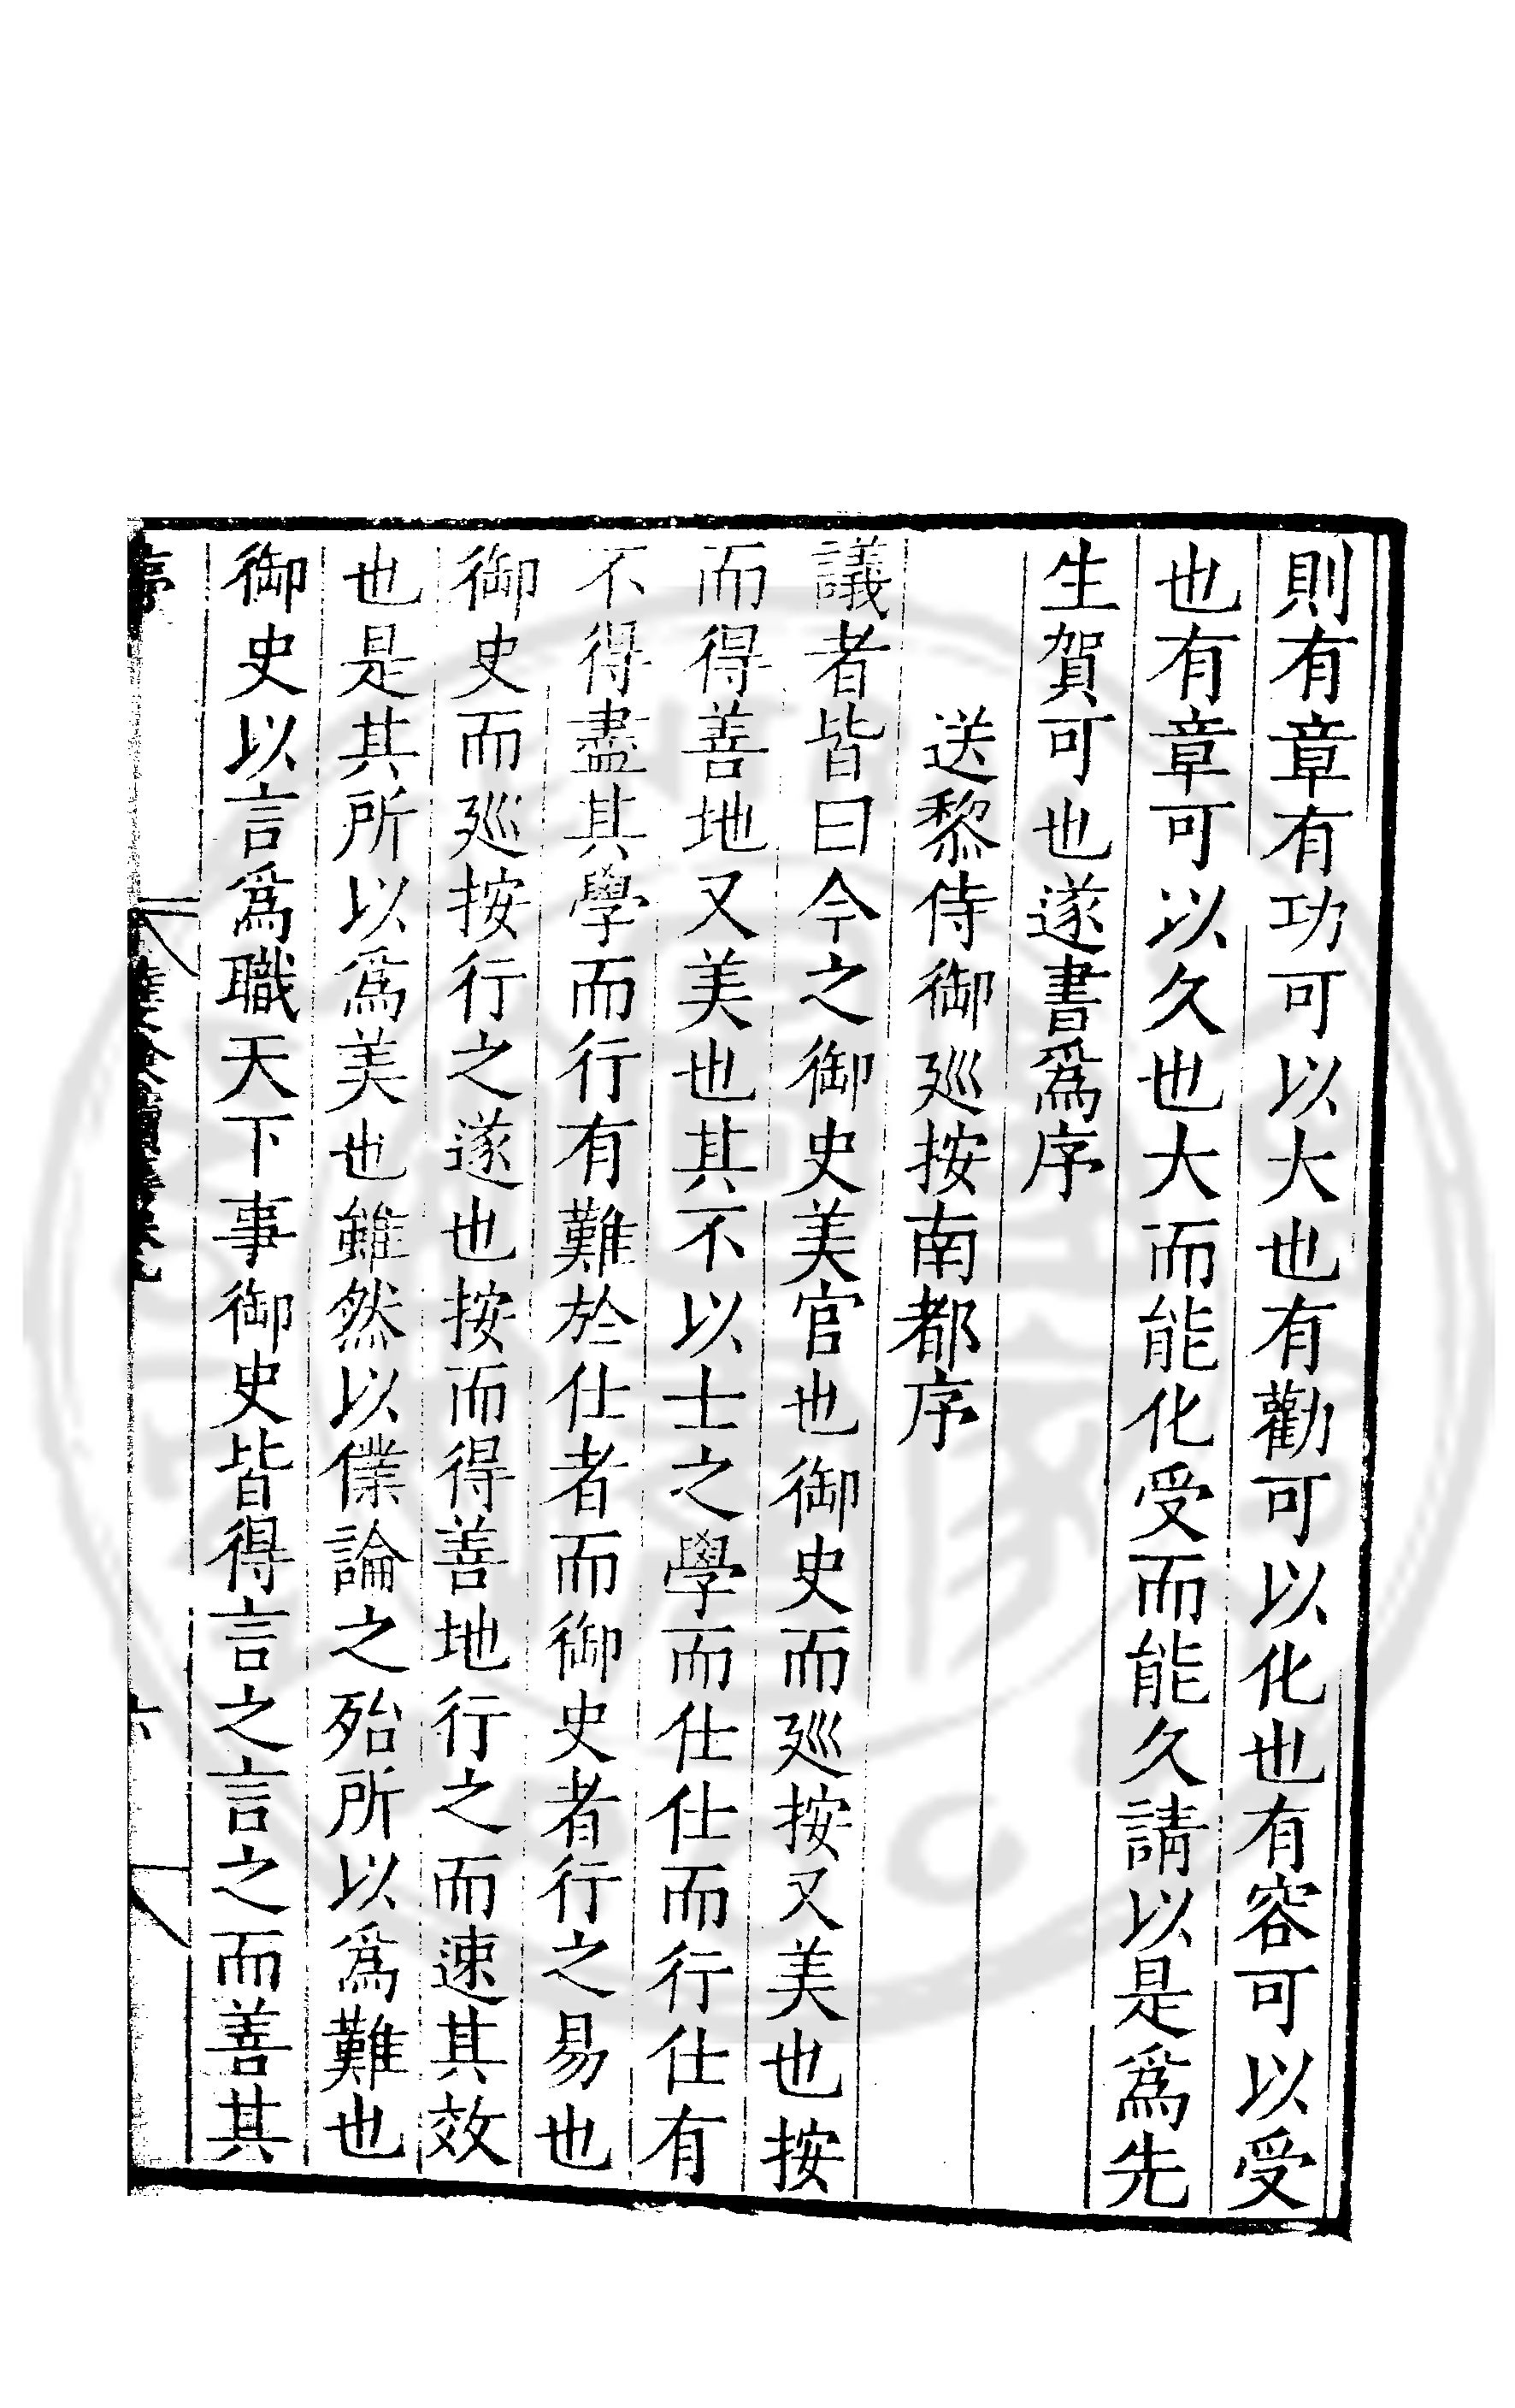 則有章有功可以大也有勸可以化也有容可以受
也有章可以久也大而能化受而能久請以是爲先
生賀可也遂書爲序
送黎侍御廵按南都序
議者皆曰今之御史美官也御史而廵按又美也按
而得善地又美也其不以士之學而仕仕而行仕有
不得盡其學而行有難於仕者而御史者行之易也
御史而廵按行之遂也按而得善地行之而速其效
也是其所以爲美也雖然以僕論之殆所以爲難也
御史以言爲職天下事御史皆得言之言之而善其